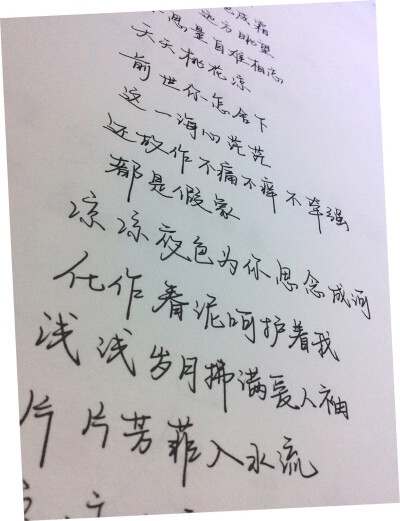 色成霜
远方眺望
思量自难相忘
夭夭桃花凉
前世你怎舍下
这一海心茫茫
还故作不痛不痒不牵强
都是假象
凉凉夜色为你思念成河
化作春泥呵护着我
浅浅岁月拂满爱人袖
片片芳菲入水流